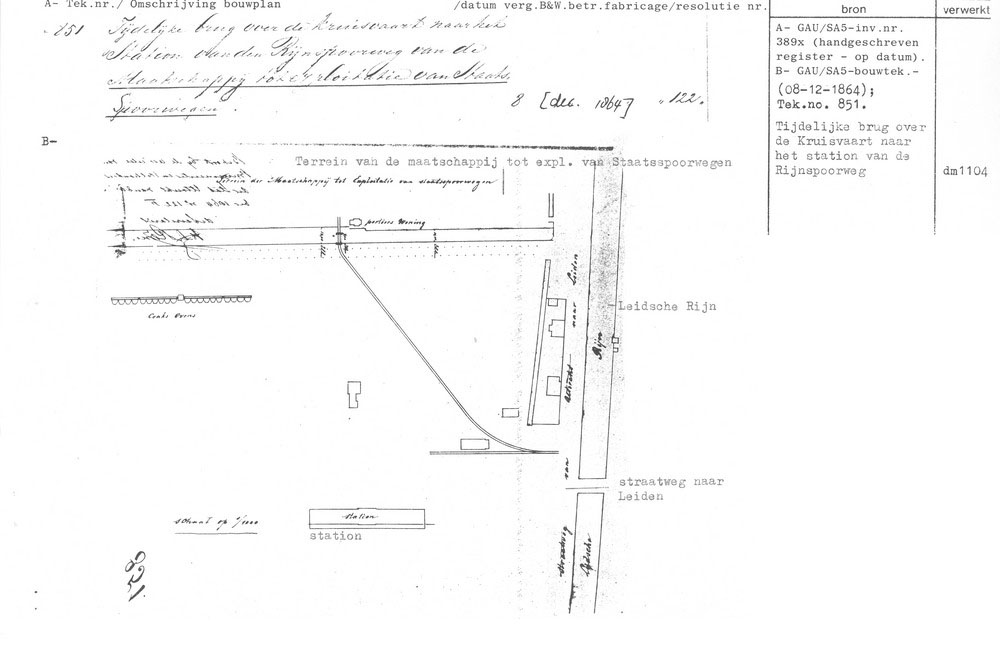 A- Tek.nr./ Omschrijving bouwplan
/datum verg.B&W.betr.fabricage/resolutie nr.
bron
verwerkt
851 Tijdelijke brug over de Kruisvaart naar het
Station van den Rijnspoorweg van de
Maatschappij tot exploitatie van Staats
Spoorwegen.
8 [dec. 1864] 122.
A- GAU/SA5-inv.nr.
389x (handgeschreven
register - op datum).
B- GAU/SA5-bouwtek.-
(08-12-1864);
Tek.no. 851.
Tijdelijke brug over
de Kruisvaart naar
het station van de
Rijnspoorweg
dm1104
B-
Terrein van de maatschappij tot expl. van Staatsspoorwegen
Terrein der Maatschappij tot Exploitatie van staatsspoorwegen
portiers Woning
Coaks Ovens
Leidsche Rijn
Rijn
straatweg naar
Leiden
Straatweg van Utrecht naar Leiden
Leidsche
schaal op 1/1000
station
station
851